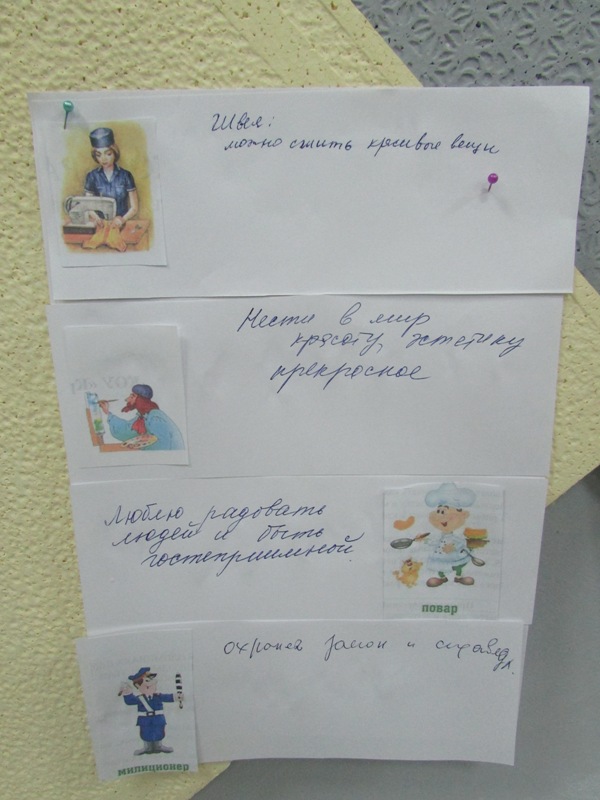 Швея:
можно сшить красивые вещи
Нести в мир
красоту, эстетику
прекрасное
Люблю радовать
людей и быть
гостеприимной.
повар
охраняет закон и справед.
милиционер